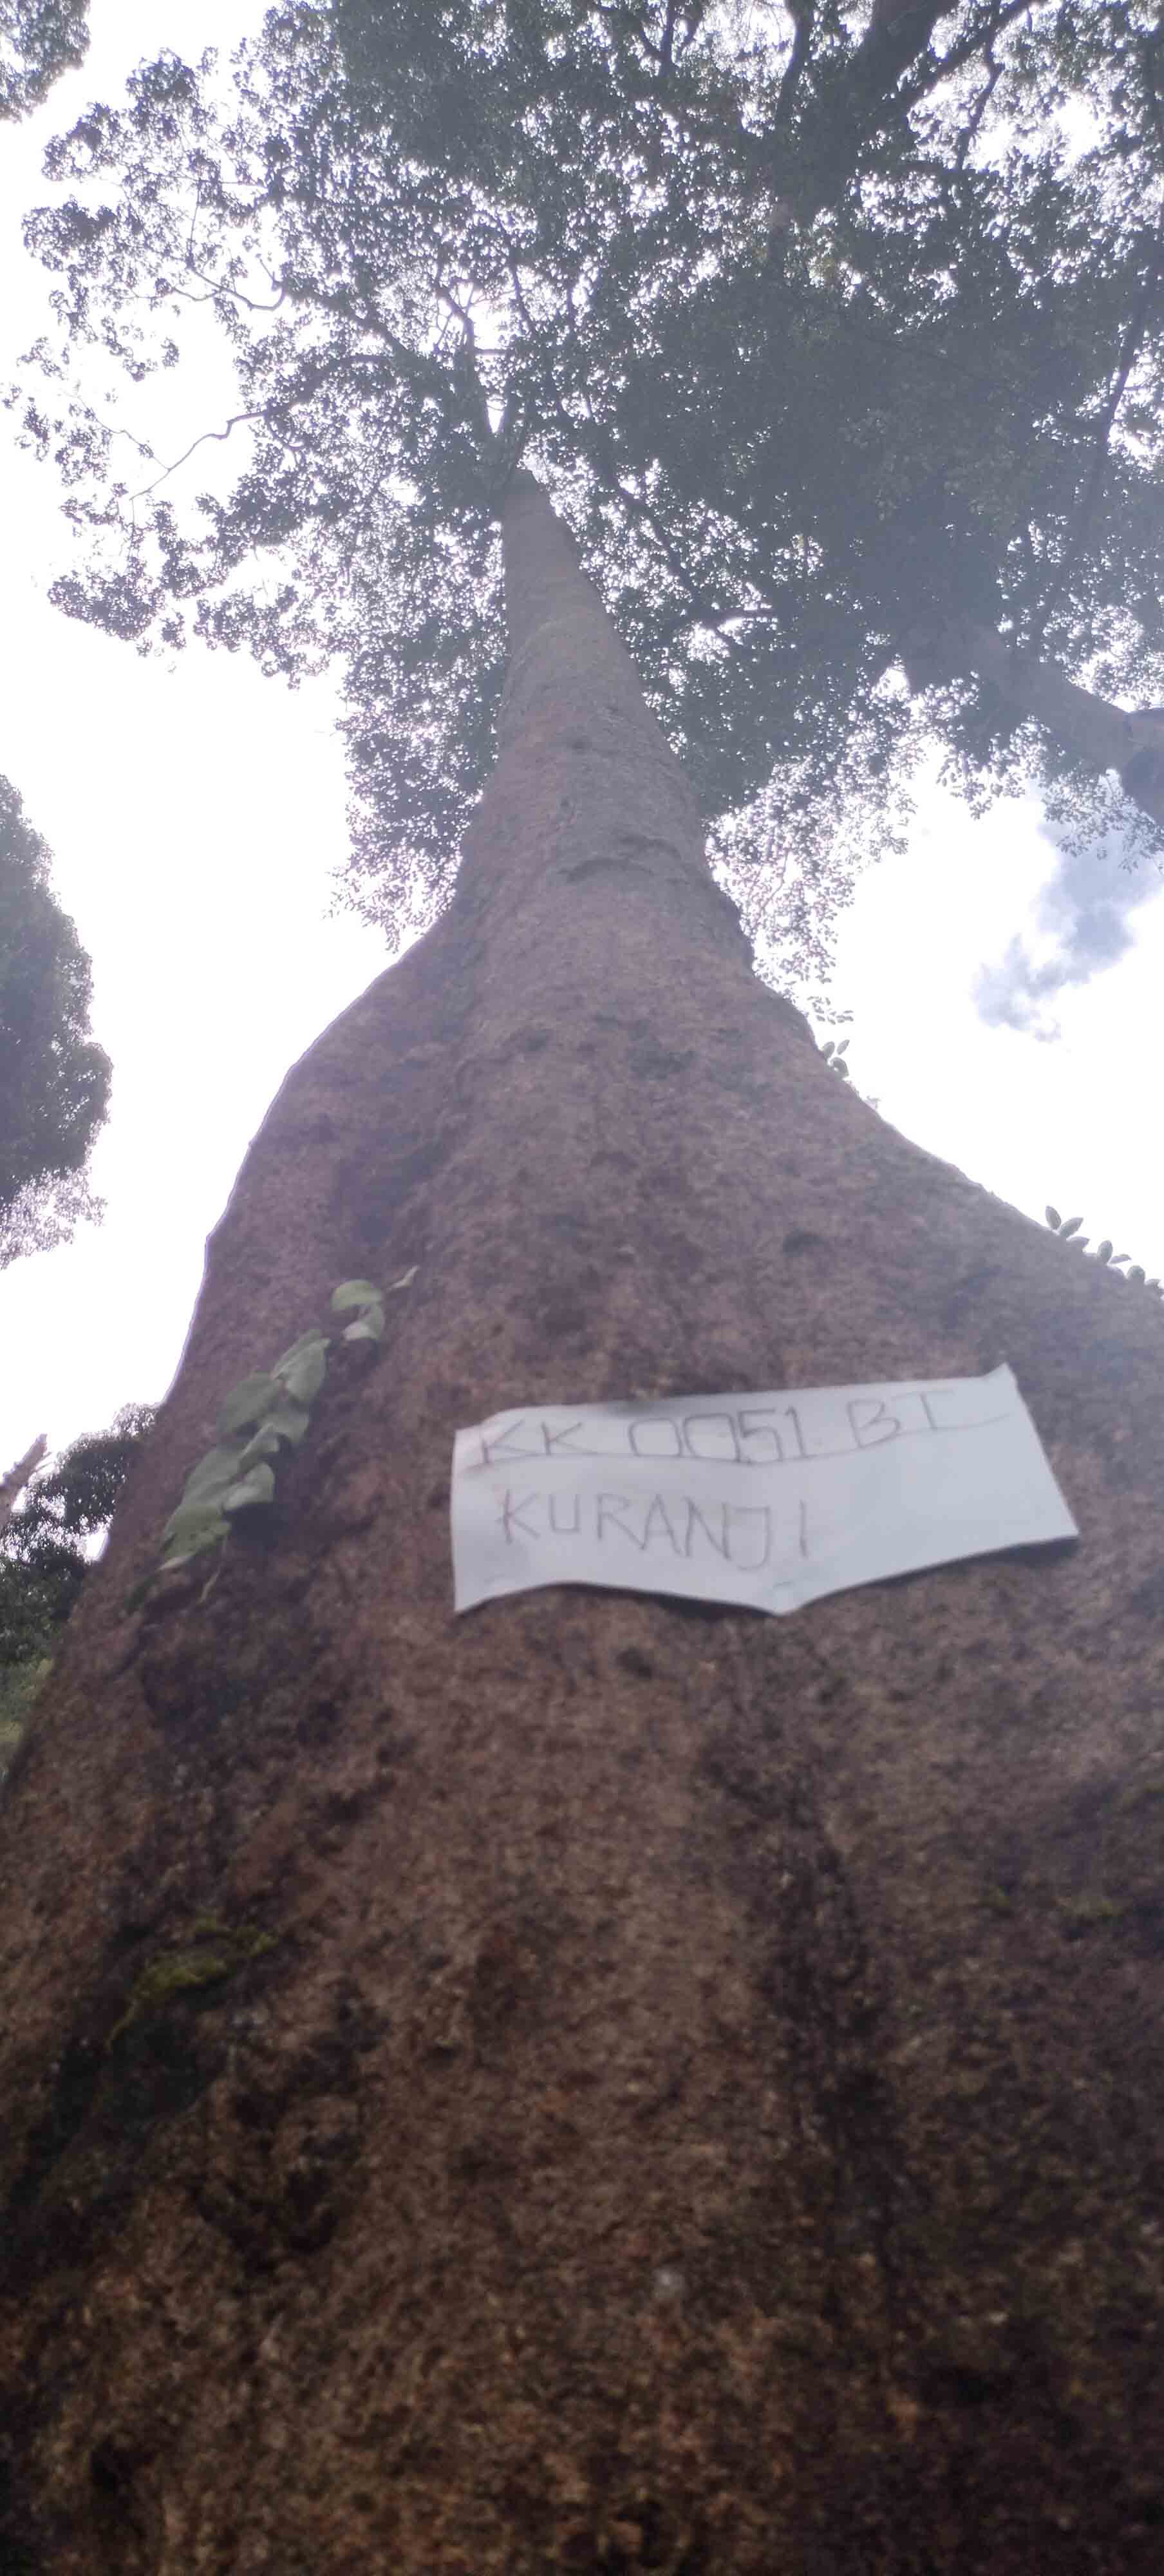 KK 0051 BI
KURANJI